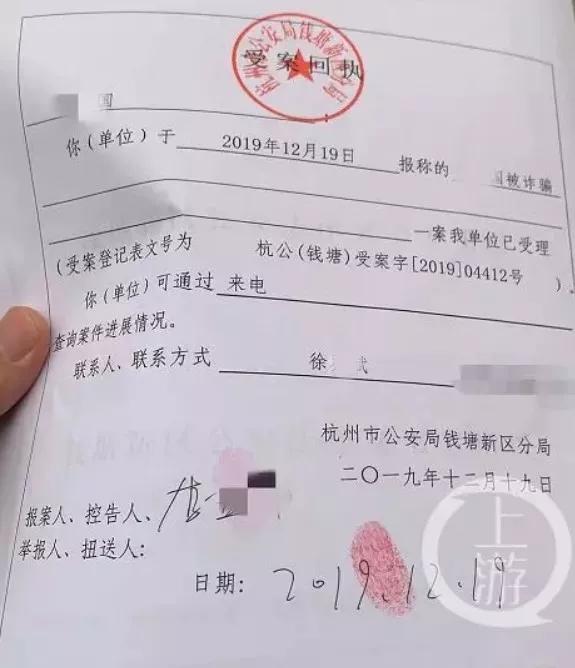 杭州市公安局钱塘新区分局
受案回执
国
你(单位)于 2019年12月19日 报称的 国被诈骗
一案我单位已受理
(受案登记表文号为 杭公(钱塘)受案字[2019]04412号 )。
你(单位)可通过 来电
查询案件进展情况。
联系人、联系方式 徐 武
杭州市公安局钱塘新区分局
二〇一九年十二月十九日
报案人、控告人、
举报人、扭送人:
日期: 2019.12.19
上游